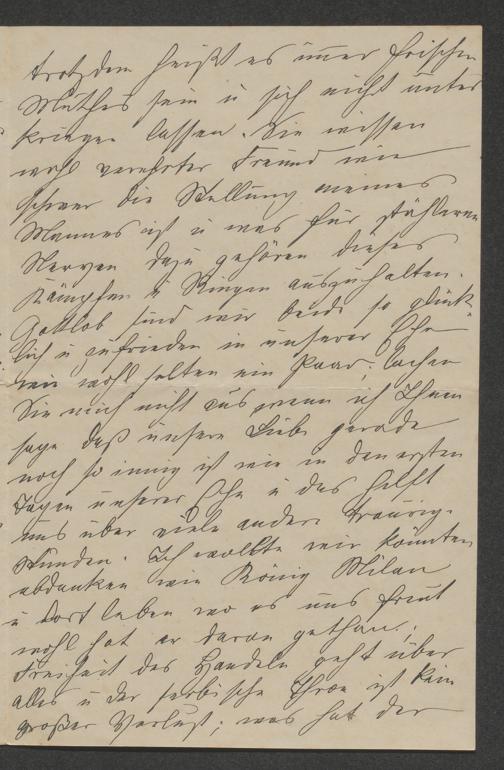 trotzdem heißt es immer frischen
Muthes sein u sich nicht unter
kriegen lassen. Sie wissen
wohl verehrter Freund wie
schwer die Stellung meines
Mannes ist u was für stählerne
Nerven dazu gehören dieses
Kämpfen u Ringen auszuhalten.
Gottlob sind wir beide so glück-
lich u zufrieden in unserer Ehe
wie wohl selten ein Paar; lachen
Sie mich nicht aus wenn ich Ihnen
sage daß unsere Liebe gerade
noch so innig ist wie in den ersten
Tagen unserer Ehe u das hilft
uns über viele andere traurige
Stunden. Ich wollte wir könnten
abdanken wie König Milan
u dort leben wo es uns freut
wohl hat er daran gethan;
Freiheit des Handeln geht über
alles u der serbische Thron ist kein
großer Verlust; was hat der